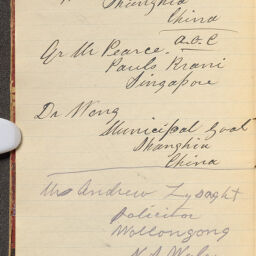 Shanghia
China
Gr Mr Pearce. A.O.C
Pauls Krani
Singapore
Dr Wong
Municipal Goal
Shanghia
China
Mrs Andrew Lysaght
Solicitor
Wollongong
N.S. Wales